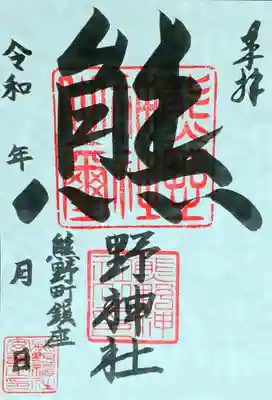 奉拝
熊
野神社
熊野町鎮座
令和　年　月　日